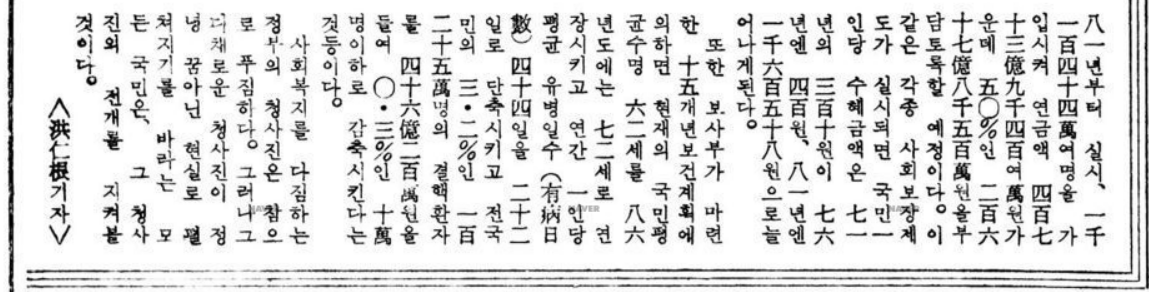 八一년부터 실시、一千
一百四十四萬여명을 가
입시켜 연금액 四百七
十三億九千四百여萬원가
운데 五○%인 二百六
十七億八千五百萬원을부
담토록할 예정이다。이
같은 각종 사회보장제
도가 실시되면 국민一
인당 수혜금액은 七一
년의 三百十원이 七六
년엔 四百원、八一년엔
一千六百五十八원으로늘
어나게된다。
또한 보사부가 마련
한 十五개년보건계획에
의하면 현재의 국민평
균수명 六二세를 八六
년도에는 七二세로 연
장시키고 연간 一인당
평균 유병일수 (有病日
數) 四十四일을 二十二
일로 단축시키고 전국
민의 三·二%인 一百
二十五萬명의 결핵환자
를 四十六億二百萬원을
들여 ○·三%인 十萬
명이하로 감축시킨다는
것등이다。
사회복지를 다짐하는
정부의 청사진은 참으
로 푸짐하다。그러나그
다채로운 청사진이 정
녕 꿈아닌 현실로 펼
쳐지기를 바라는 모
든 국민은、그 청사
진의 전개를 지켜볼
것이다。
<洪仁根기자>
NAVER